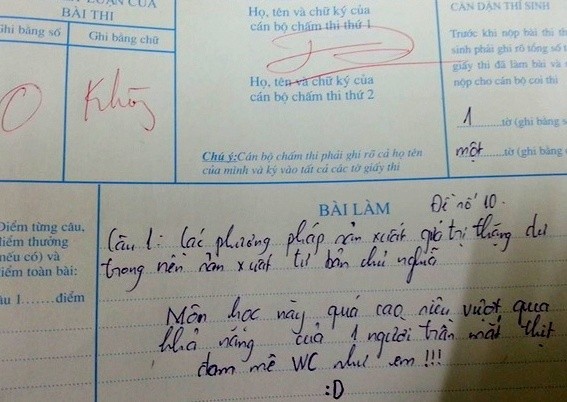 LUẬN CỦA
BÀI THI
Ghi bằng số
Ghi bằng chữ
0
Không
Họ, tên và chữ ký của
cán bộ chấm thi thứ 1
Họ, tên và chữ ký của
cán bộ chấm thi thứ 2
Chú ý: Cán bộ chấm thi phải ghi rõ cả họ tên
của mình và ký vào tất cả các tờ giấy thi
CĂN DẶN THÍ SINH
Trước khi nộp bài thi th
sinh phải ghi rõ tổng số t
giấy thi đã làm bài và
nộp cho cán bộ coi thi
1 ......tờ (ghi bằng s
một ......tờ (ghi bằng
Điểm từng câu,
điểm thưởng
(nếu có) và
điểm toàn bài:
âu 1......điểm
BÀI LÀM
Đề số 10.
Câu 1: Các phương pháp sản xuất giá trị thặng dư
trong nền sản xuất tư bản chủ nghĩa
Môn học này quá cao siêu vượt qua
khả năng của 1 người trần mắt thịt
đam mê WC như em !!!
:D